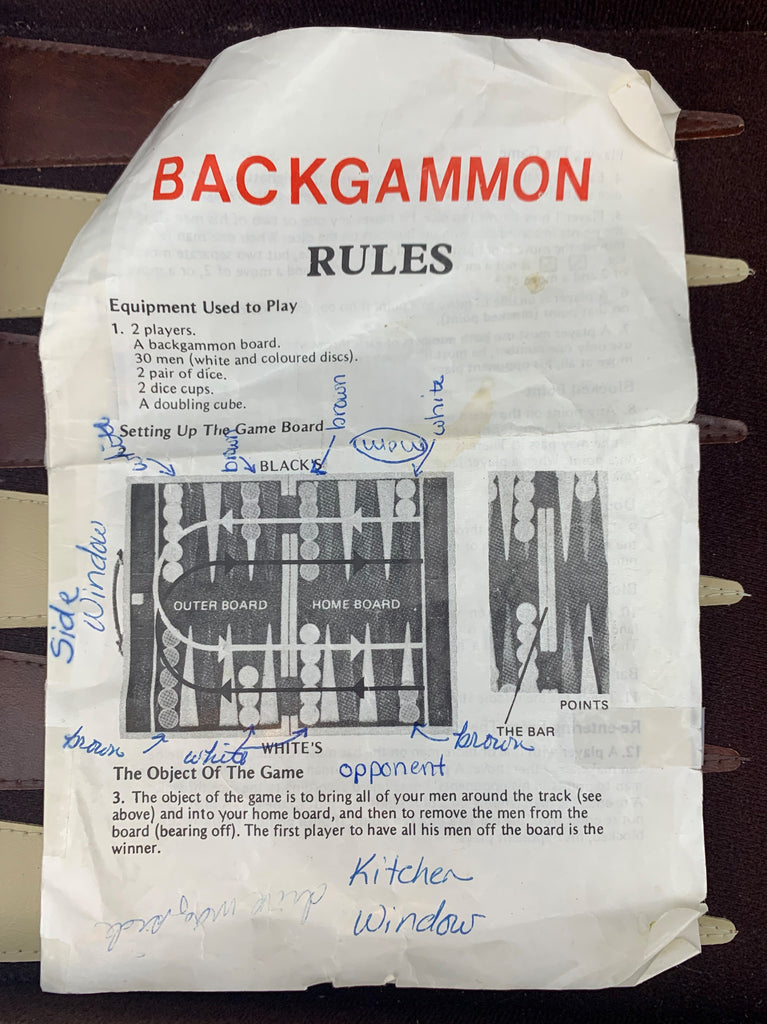 BACKGAMMON
RULES
Equipment Used to Play
1. 2 players.
A backgammon board.
30 men (white and coloured discs).
2 pair of dice.
2 dice cups.
A doubling cube.
Setting Up The Game Board
white
brown
brown
mom
white
BLACK'S
Side
Window
OUTER BOARD
HOME BOARD
POINTS
THE BAR
brown
white
WHITE'S
brown
The Object Of The Game
opponent
3. The object of the game is to bring all of your men around the track (see
above) and into your home board, and then to remove the men from the
board (bearing off). The first player to have all his men off the board is the
winner.
Kitchen
Window